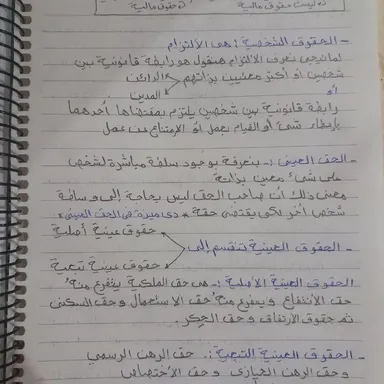 ت ليست حقوق مالية
ت حقوق مالية
- الحقوق الشخصية : هى الالتزام
لما نيجى نعرف الالتزام هنقول هو رابطة قانونية بين
شخصين أو أكثر معينين بذاتهم
الدائن
المدين
أو
رابطة قانونية بين شخصين يلتزم بمقتضاها أحدهما
بإعطاء شئ أو القيام بعمل أو الإمتناع عن عمل
- الحق العينى :- بنعرفة بوجود سلطة مباشرة لشخص
على شئ معين بذاتة
معنى ذلك أن صاحب الحق ليس بحاجة إلى وساطة
شخص أخر لكى يقتضى حقة « دى ميزة فى الحق العينى »
حقوق عينية أصلية
- الحقوق العينية تنقسم إلى
حقوق عينية تبعية
الحقوق العينية الأصلية :- هى حق الملكية يتفرع منهُ
حق الانتفاع ويتفرع منهُ حق الاستعمال وحق السكنى
ثم حقوق الارتفاق وحق الحِكر.
- الحقوق العينية التبعية :. حق الرهن الرسمي
وحق الرهن الحيازى وحق الاختصاص